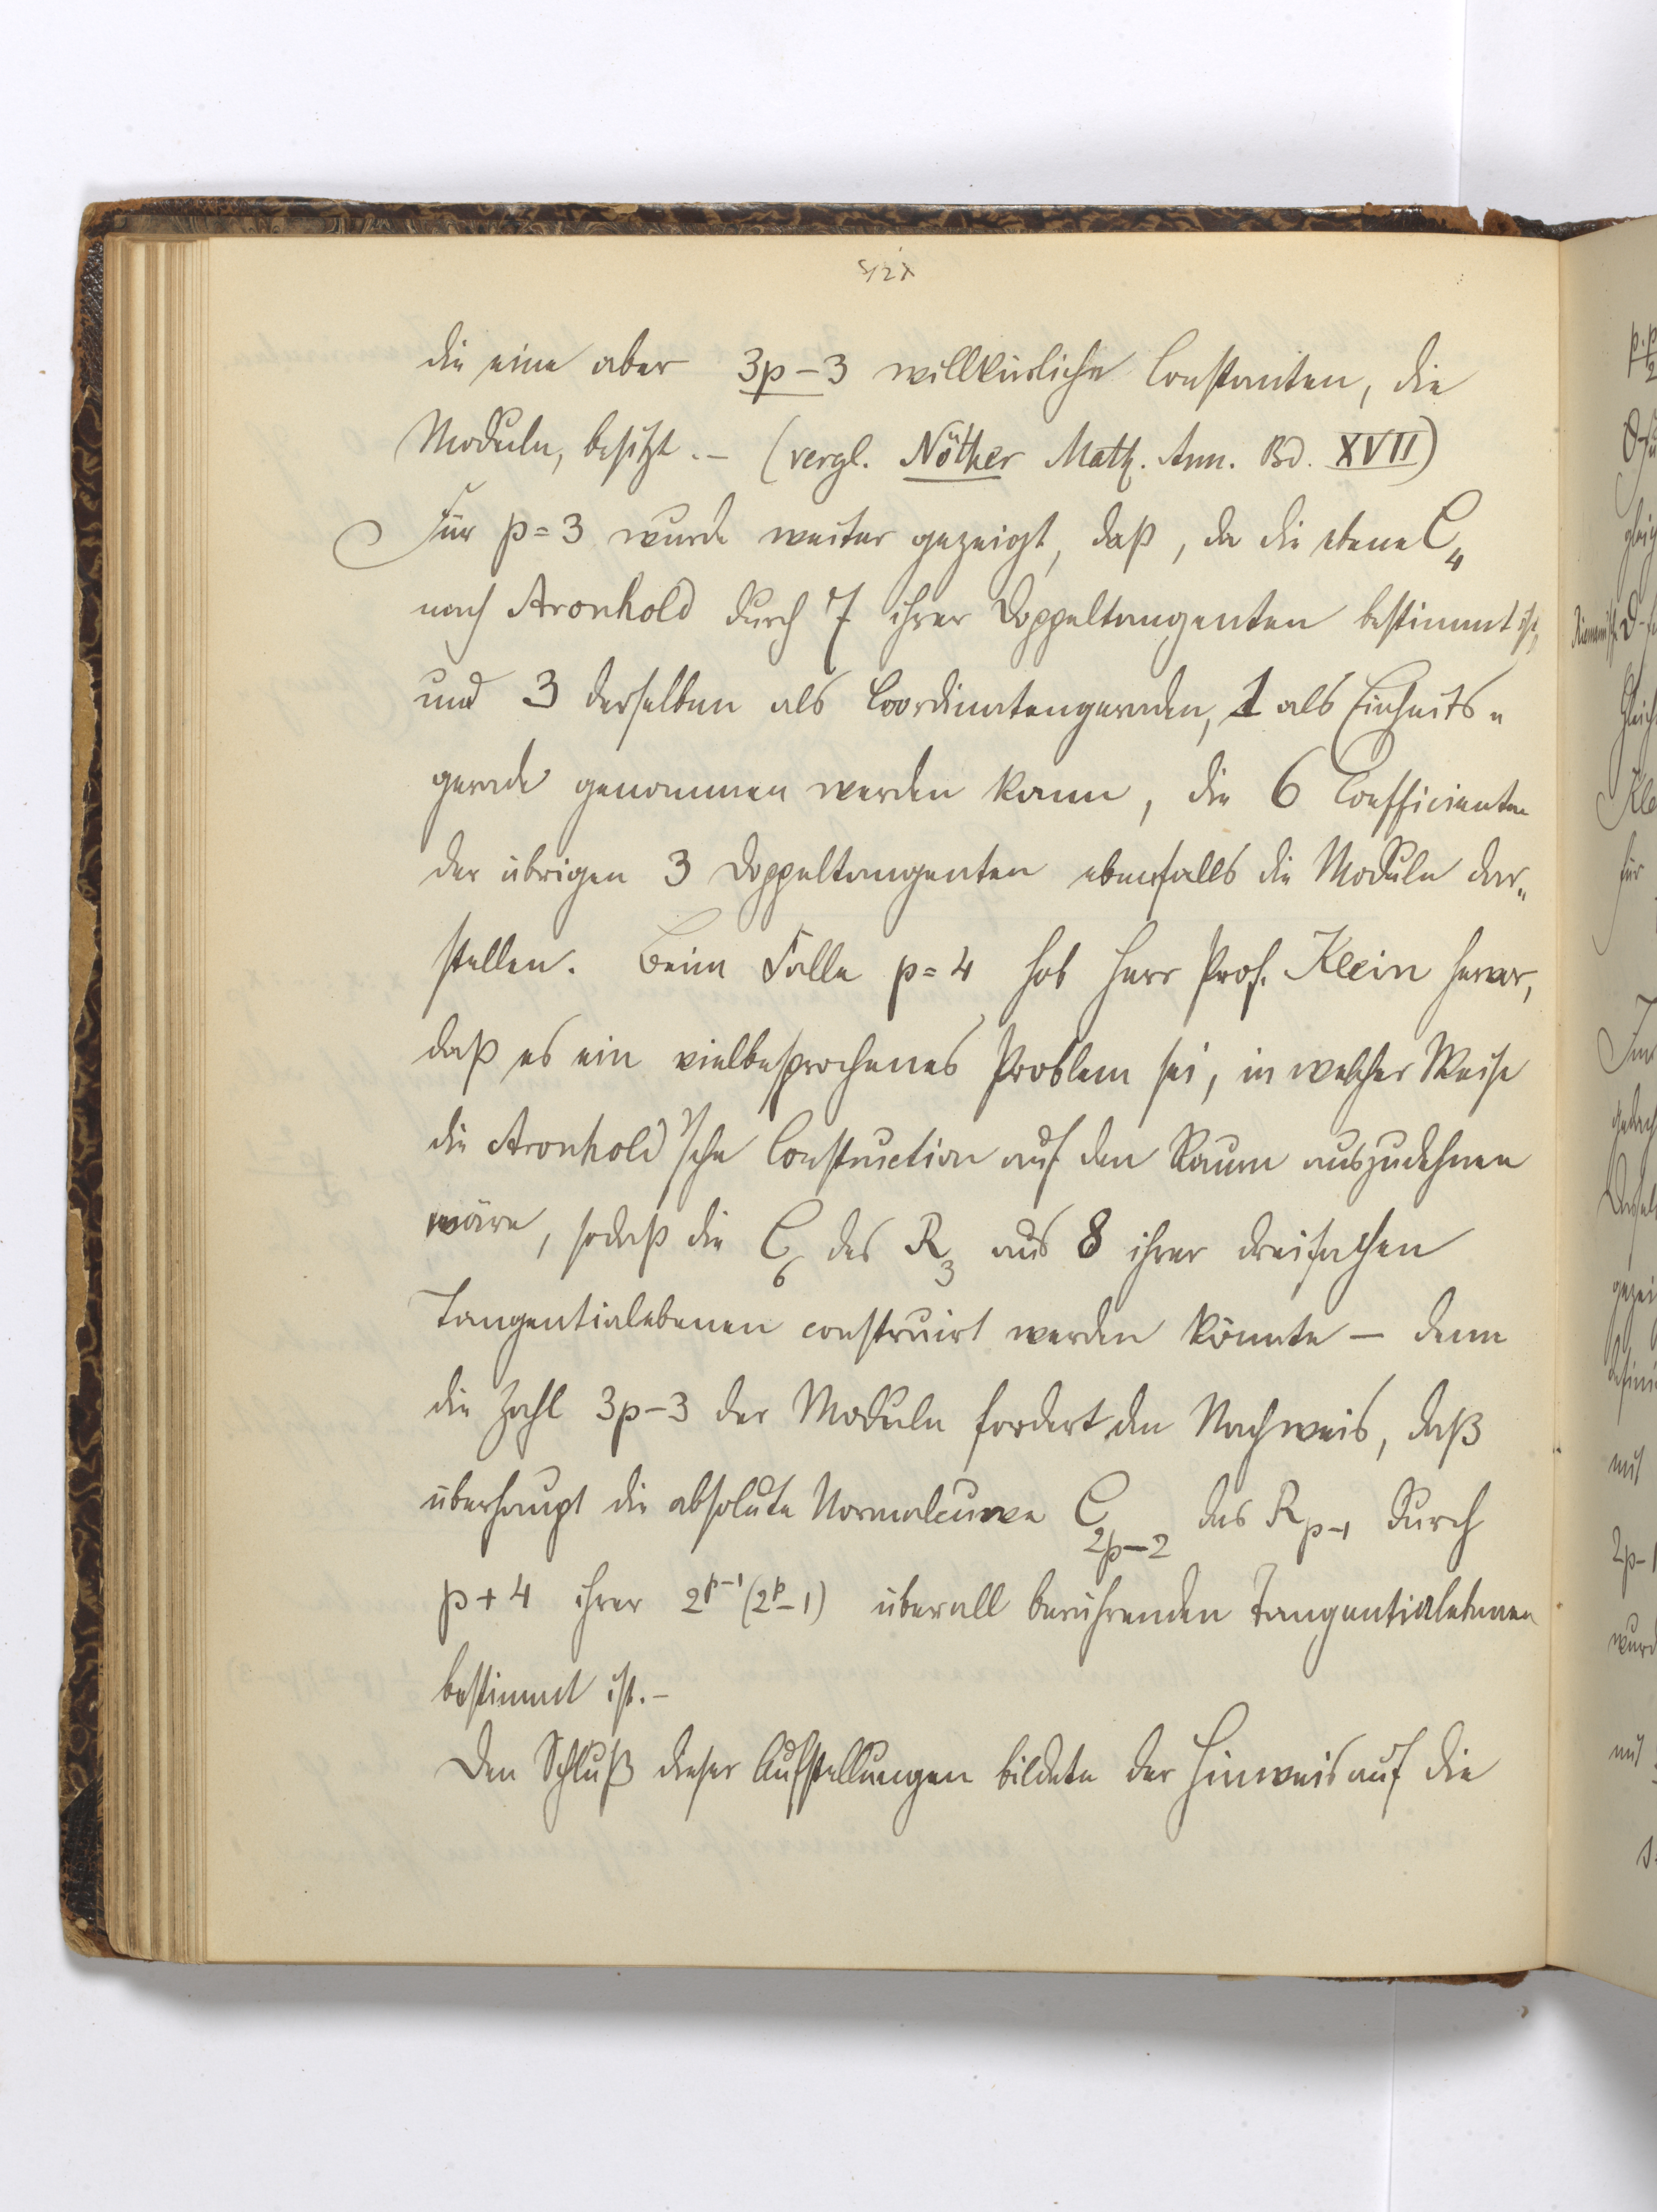 die eine aber 3p-3 willkürliche Constanten, die
Moduln, besitzt. – (vergl. Nöther Math. Ann. Bd. XVII)
Für p=3 wurde weiter gezeigt, daß, da die ebene C₄
nach Aronhold durch 7 ihrer Doppeltangenten bestimmt ist,
und 3 derselben als Coordinatengeraden, 1 als Einheits-
gerade genommen werden kann, die 6 Coefficienten
der übrigen 3 Doppeltangenten ebenfalls die Moduln dar-
stellen. Beim Falle p=4 hob Herr Prof. Klein hervor,
daß es ein vielbesprochenes Problem sei, in welcher Weise
die Aronhold'sche Construction auf den Raum auszudehnen
wäre, sodaß die C₆ des R₃ aus 8 ihrer dreifachen
Tangentialebenen construirt werden könnte – denn
die Zahl 3p-3 der Moduln fordert den Nachweis, daß
überhaupt die absolute Normalcurve C₂ₚ₋₂ des Rₚ₋₁ durch
p+4 ihrer 2^{p-1}(2^p-1) überall berührenden Tangentialebenen
bestimmt ist. –
Den Schluß dieser Aufstellungen bildete der Hinweis auf die